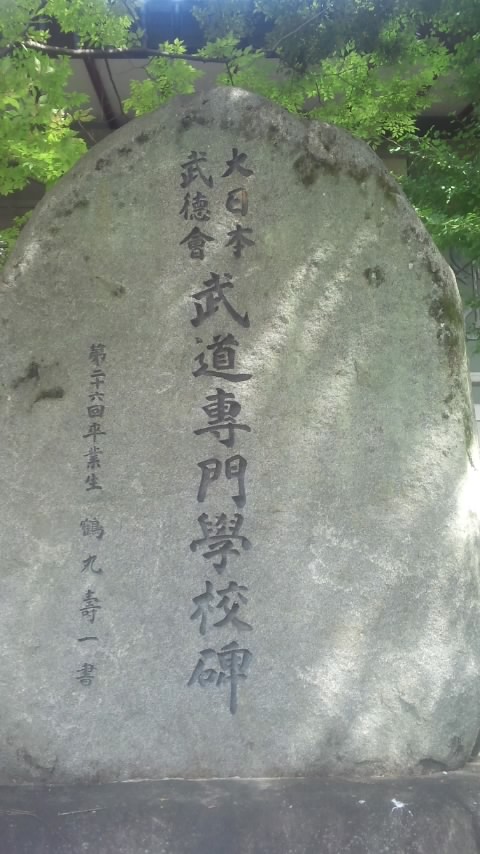 大日本
武德會
武道專門學校碑
第二十六回卒業生 鶴丸壽一書